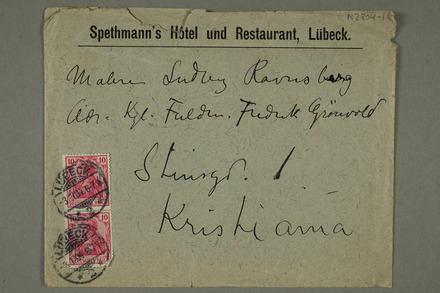 N2804-1
Spethmann's Hôtel und Restaurant, Lübeck.
Maleren Ludvig Ravnsberg
Adr. Kgl. Fuldm. Fredrik Grönvold
Stensgd. 1
Kristiania
10 10
LÜBECK
10
LÜBECK